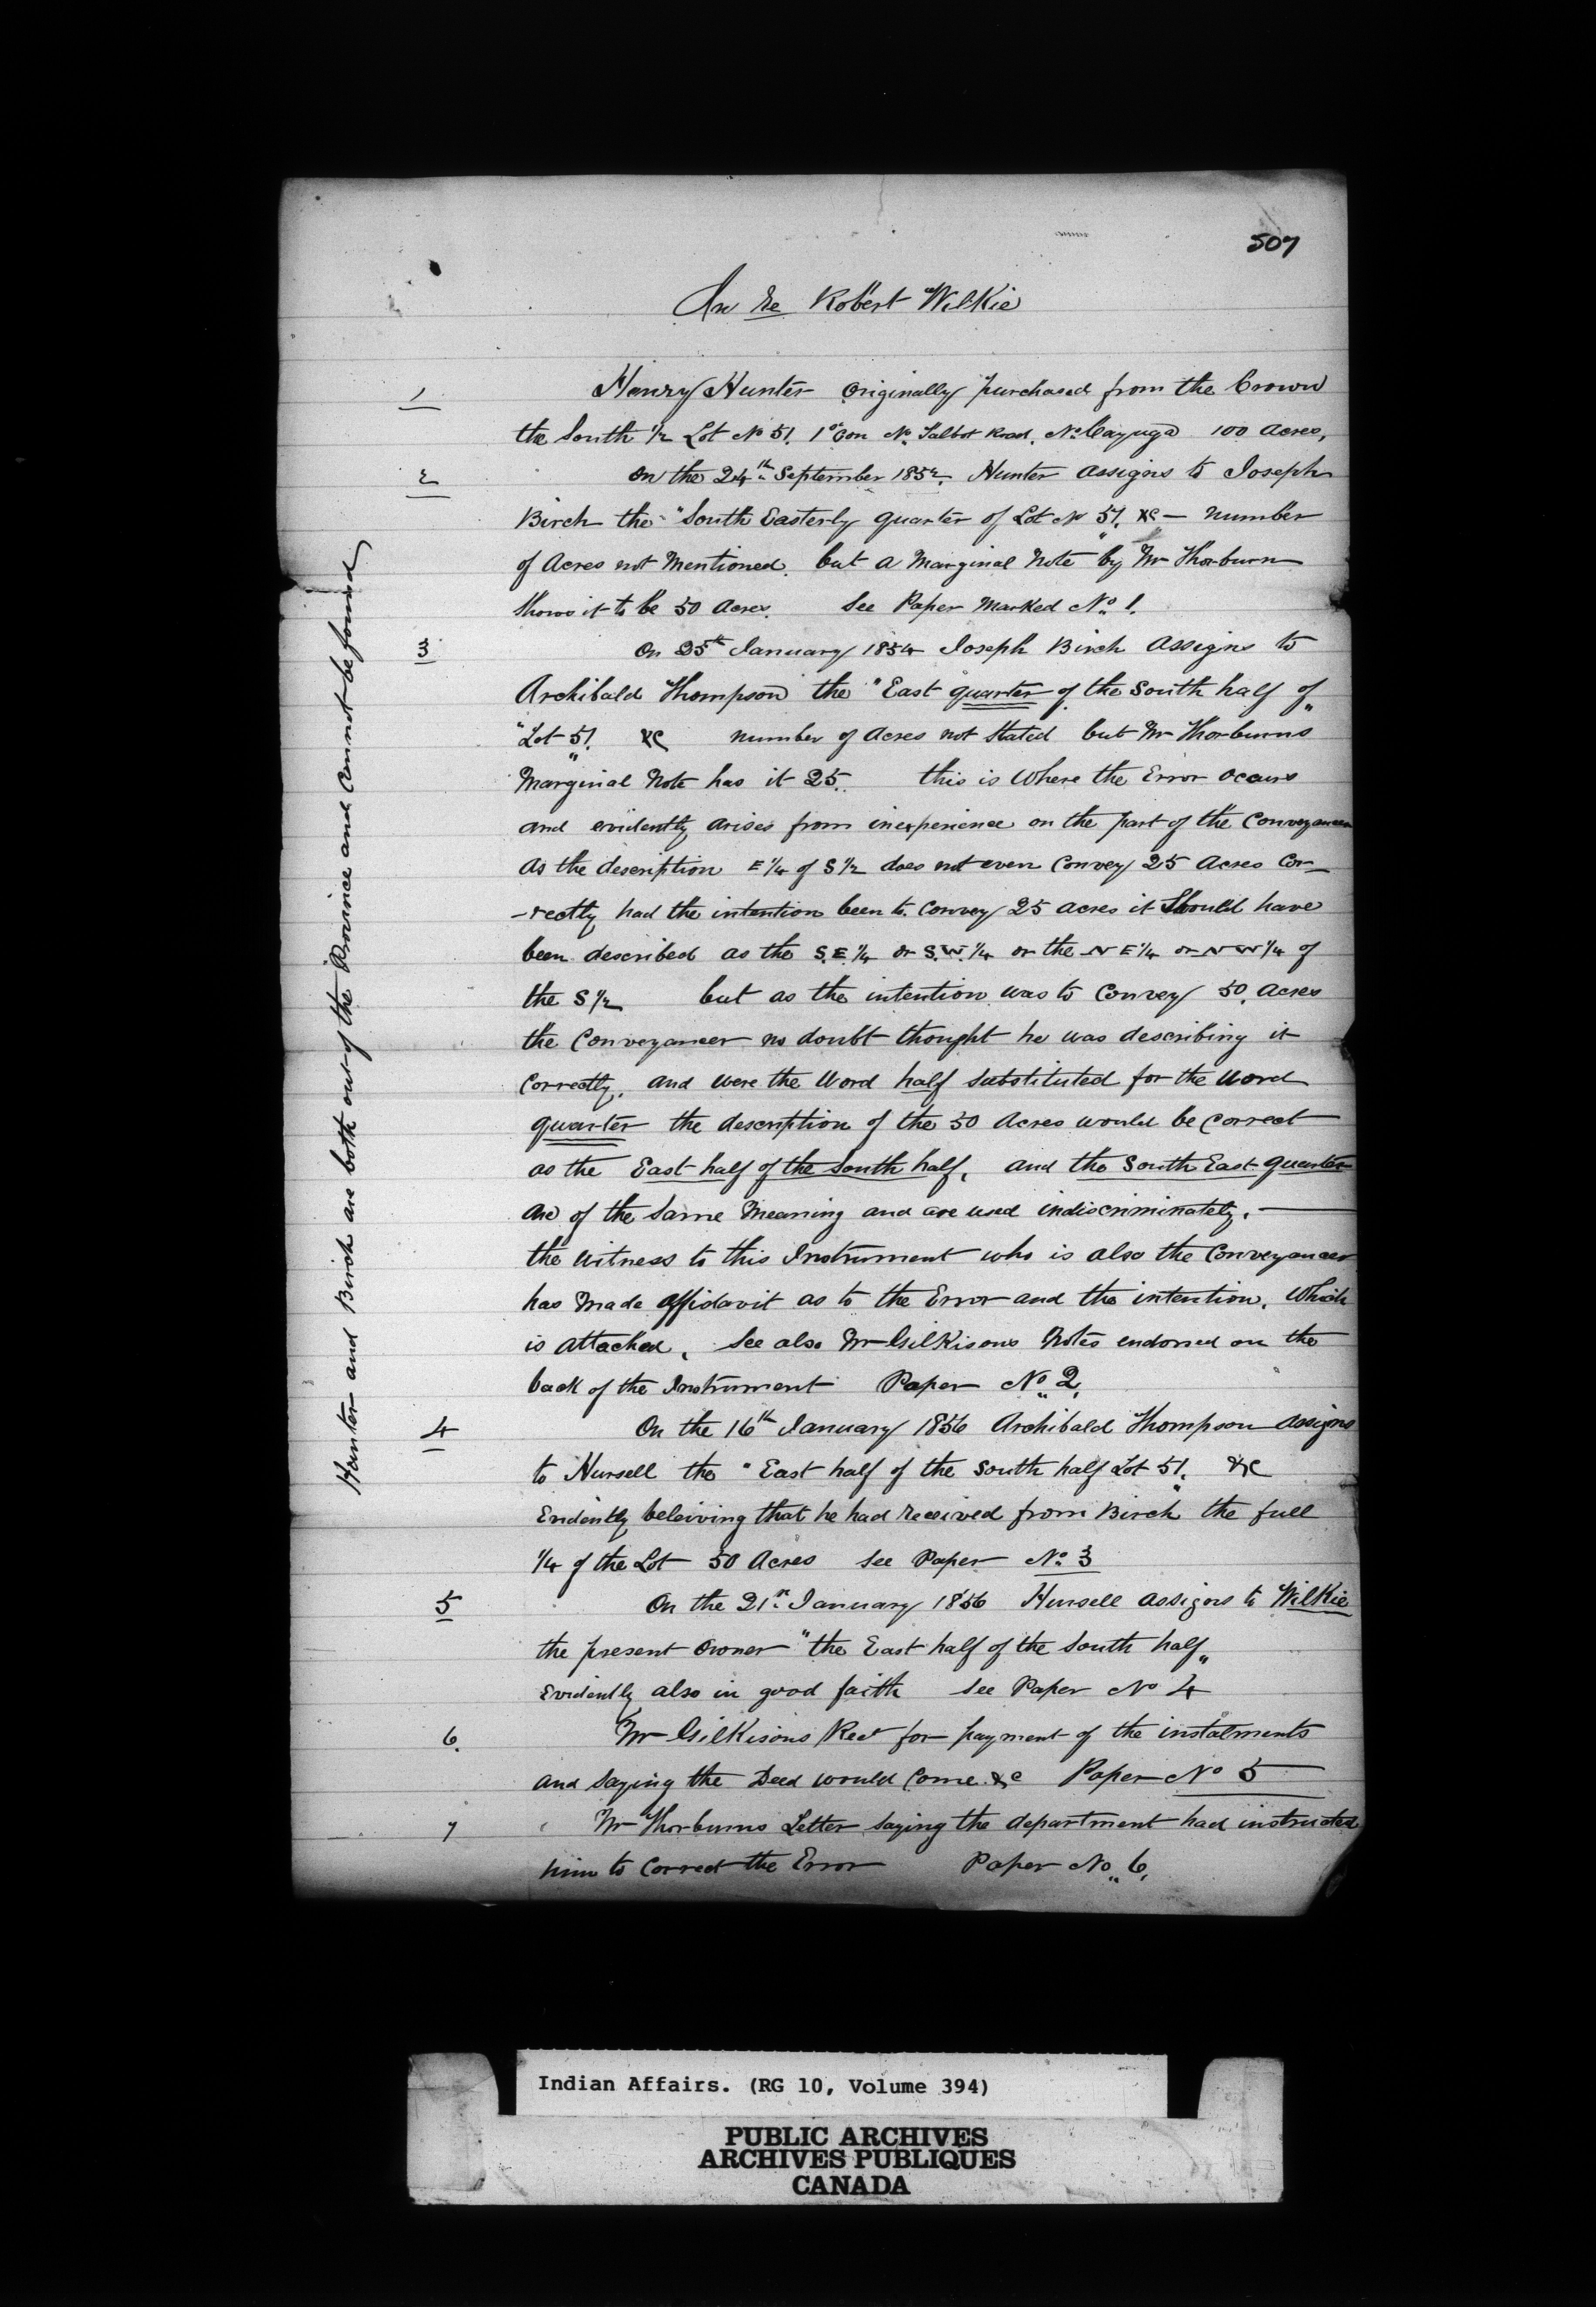 507
In re Robert Wilkie
1 Henry Hunter originally purchased from the Crown
the South 1/2 Lot No 51. 1st Con No. Talbot Road. No. Cayuga 100 acres,
2 On the 24th September 1852. Hunter assigns to Joseph
Birch the "South Easterly quarter of Lot No 51. &c" — number
of Acres not Mentioned. but a Marginal Note by Mr Thorburn
shows it to be 50 Acres. See Paper Marked No. 1.
3 On 25th January 1854 Joseph Birch assigns to
Archibald Thompson the "East quarter of the South half of"
"Lot 51." &c number of Acres not Stated but Mr Thorburns
Marginal Note has it 25. this is Where the Error ocours
and evidently arises from inexperience on the part of the Conveyancer
As the description E 1/4 of S 1/2 does not even Convey 25 Acres Cor-
-rectly had the intention been to Convey 25 acres it Should have
been described as the S.E. 1/4 or S.W. 1/4 or the N E 1/4 or N W 1/4 of
the S 1/2 but as the intention was to Convey 50. Acres
the Conveyancer no doubt thought he was describing it
Correctly, and were the Word half substituted for the Word
quarter the description of the 50 Acres would be Correct
as the East half of the South half, and the South East quarter
are of the Same Meaning and are used indiscriminately. —
the Witness to this Instrument who is also the Conveyancer
has Made affidavit as to the Error and the intention. Which
is attached, See also Mr Gilkisons Notes endorsed on the
back of the Instrument Paper No. 2.
4 On the 16th January 1856 Archibald Thompson assigns
to Hursell the "East half of the South half Lot 51." &c
Evidently beleiving that he had received from Birch the full
1/4 of the Lot 50 Acres See Paper No. 3
5 On the 21st January 1856 Hursell assigns to Wilkie
the present Owner "the East half of the South half"
Evidently also in good faith See Paper No 4
6. Mr Gilkisons Rect for payment of the instalments
and Saying the Deed would Come &c Paper No 5
7 Mr Thorburns Letter saying the department had instructed
him to Correct the Error Paper No. 6.
Hunter and Birch are both out of the Province and Cannot be found
Indian Affairs. (RG 10, Volume 394)
PUBLIC ARCHIVES
ARCHIVES PUBLIQUES
CANADA